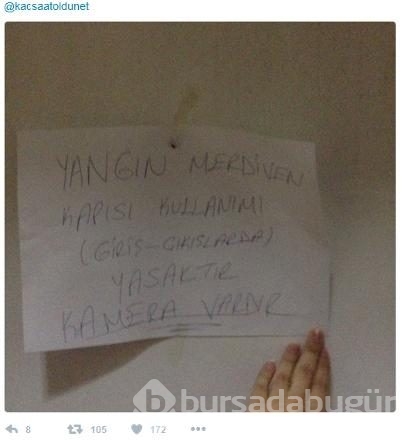 @kacsaatoldunet
YANGIN MERDİVEN
KAPISI KULLANIMI
(GİRİŞ-ÇIKIŞLARDA)
YASAKTIR
KAMERA VARDIR
b bursadabugün
8 105 172